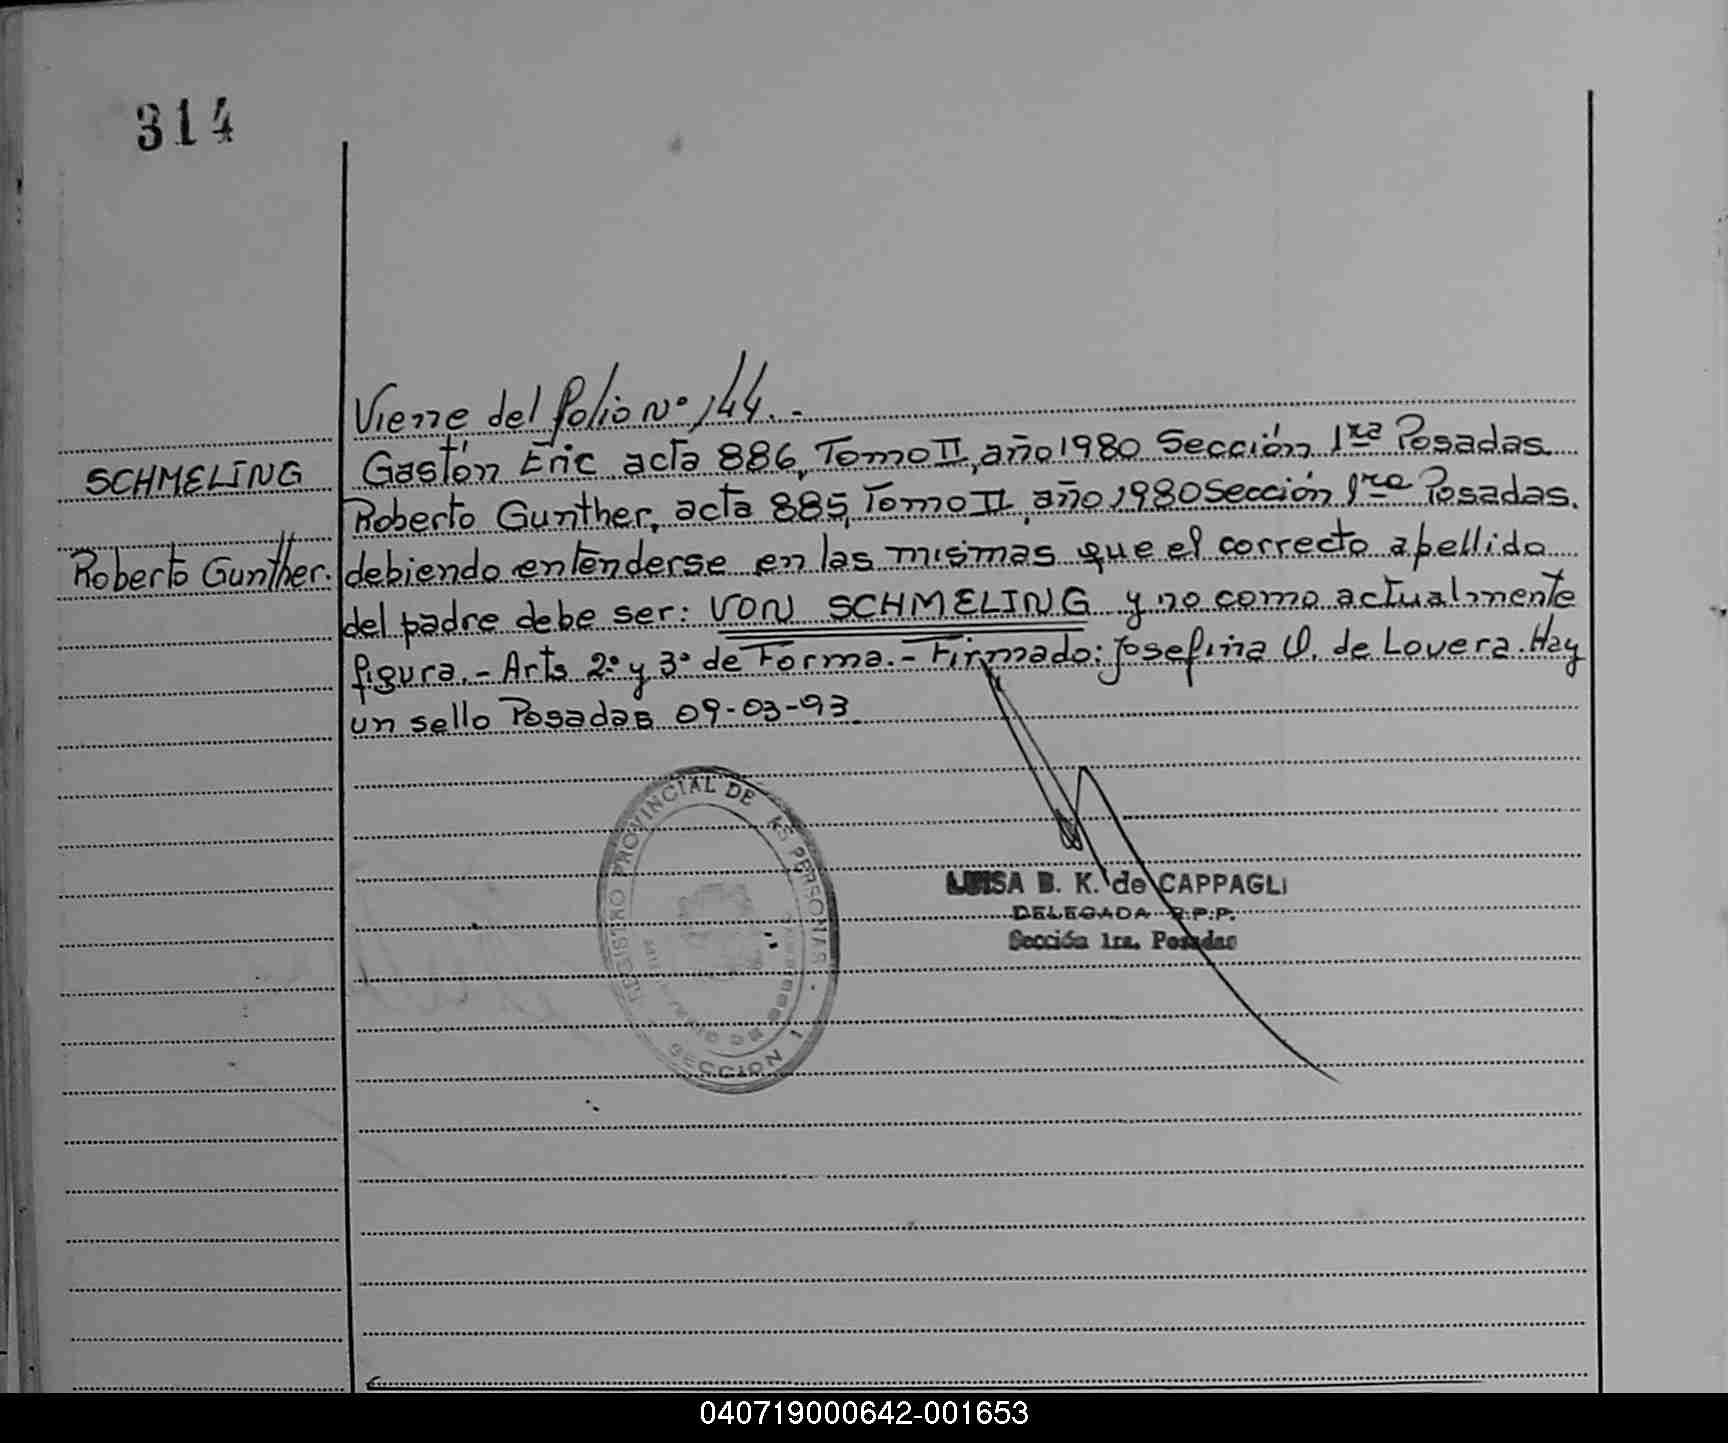 314
Viene del folio Nº 144.-
SCHMELING
Gastón Eric acta 886, Tomo II, año 1980 Sección 1ra Posadas.
Roberto Gunther, acta 885, Tomo II, año 1980 Sección 1ra Posadas.
Roberto Gunther.
debiendo entenderse en las mismas que el correcto apellido
del padre debe ser: VON SCHMELING y no como actualmente
figura.- Arts 2º y 3º de Forma.- Firmado: Josefina O. de Lovera. Hay
un sello Posadas 09-03-93.
REGISTRO PROVINCIAL DE LAS PERSONAS.
SECCION 1
LUISA B. K. de CAPPAGLI
DELEGADA R.P.P.
Sección 1ra. Posadas
040719000642-001653